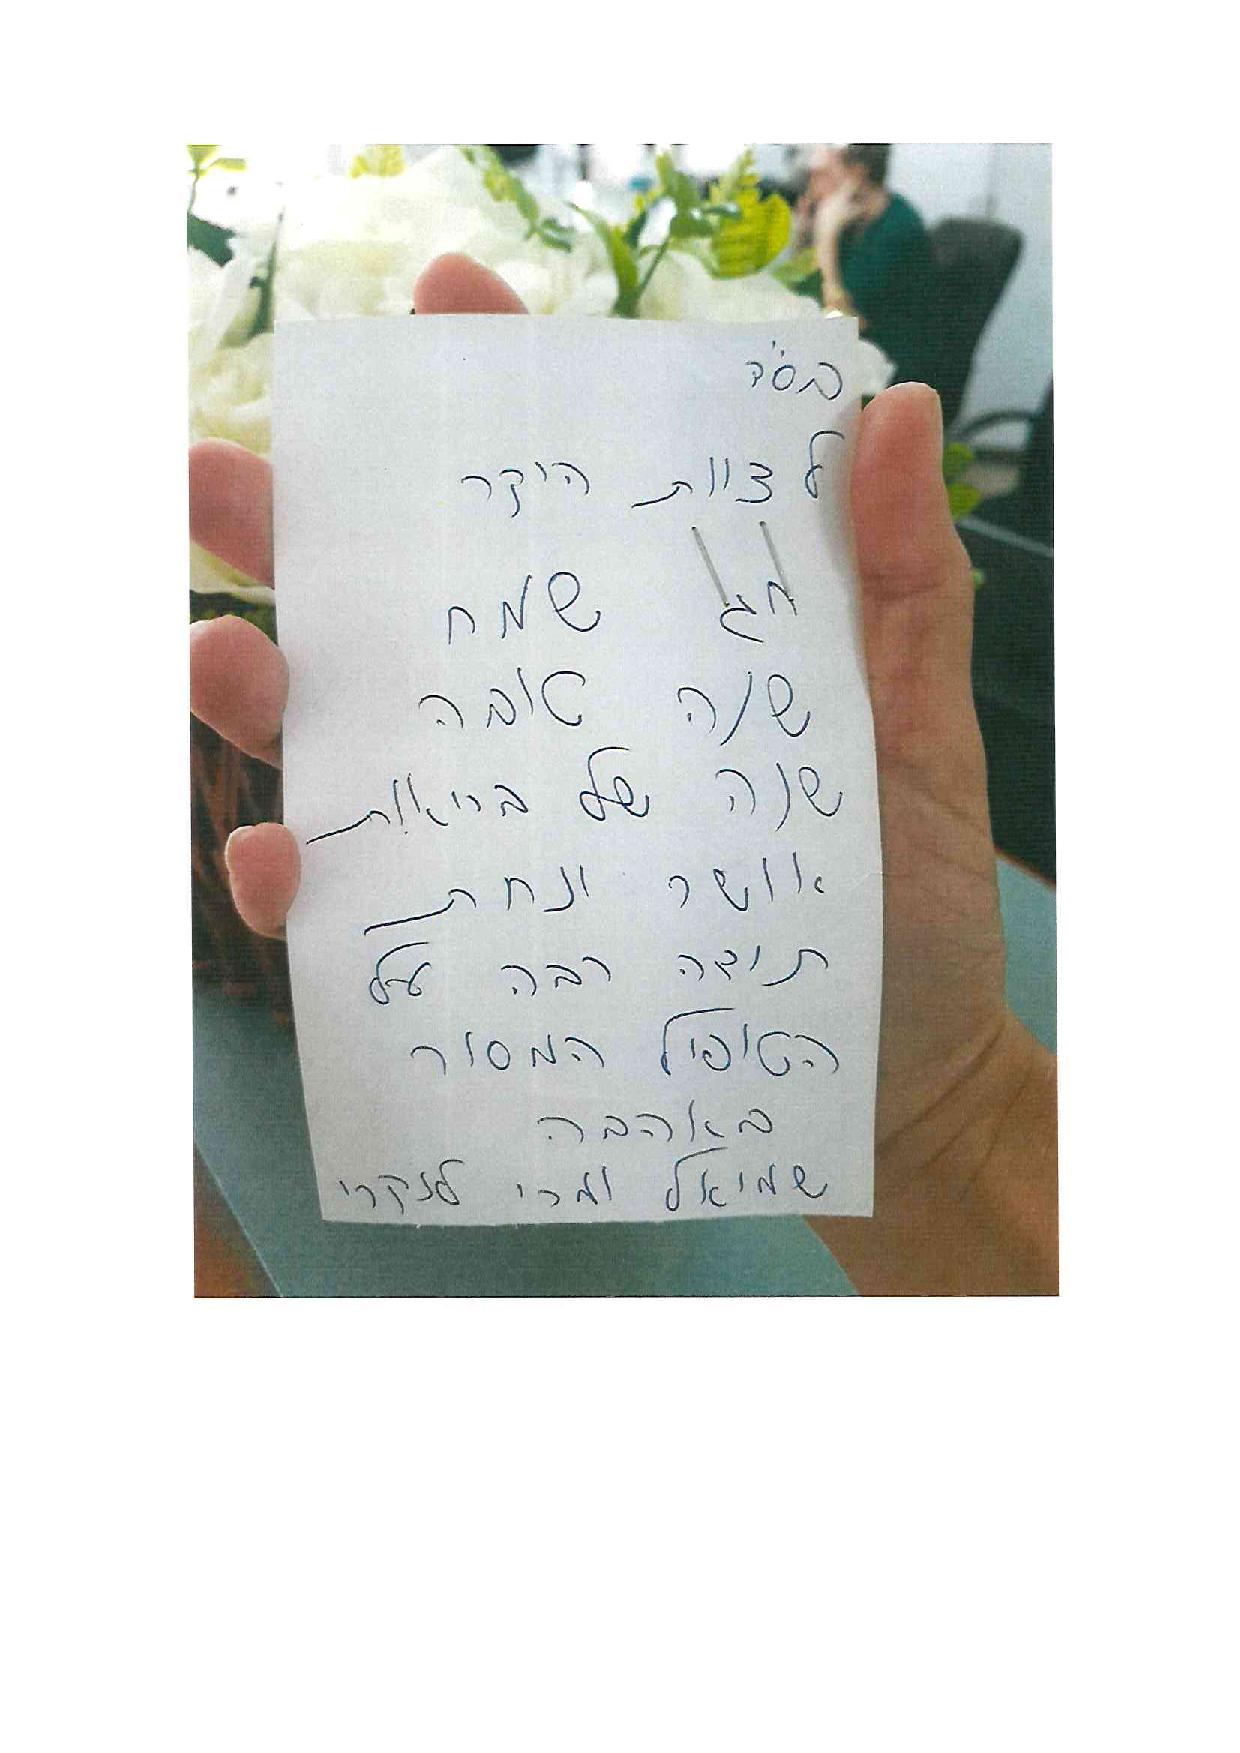 בס"ד
לצוות היקר
חג שמח
שנה טובה
שנה של בריאות
אושר ונחת
תודה רבה על
הטיפול המסור
באהבה
שמואל ומרי לנקרי